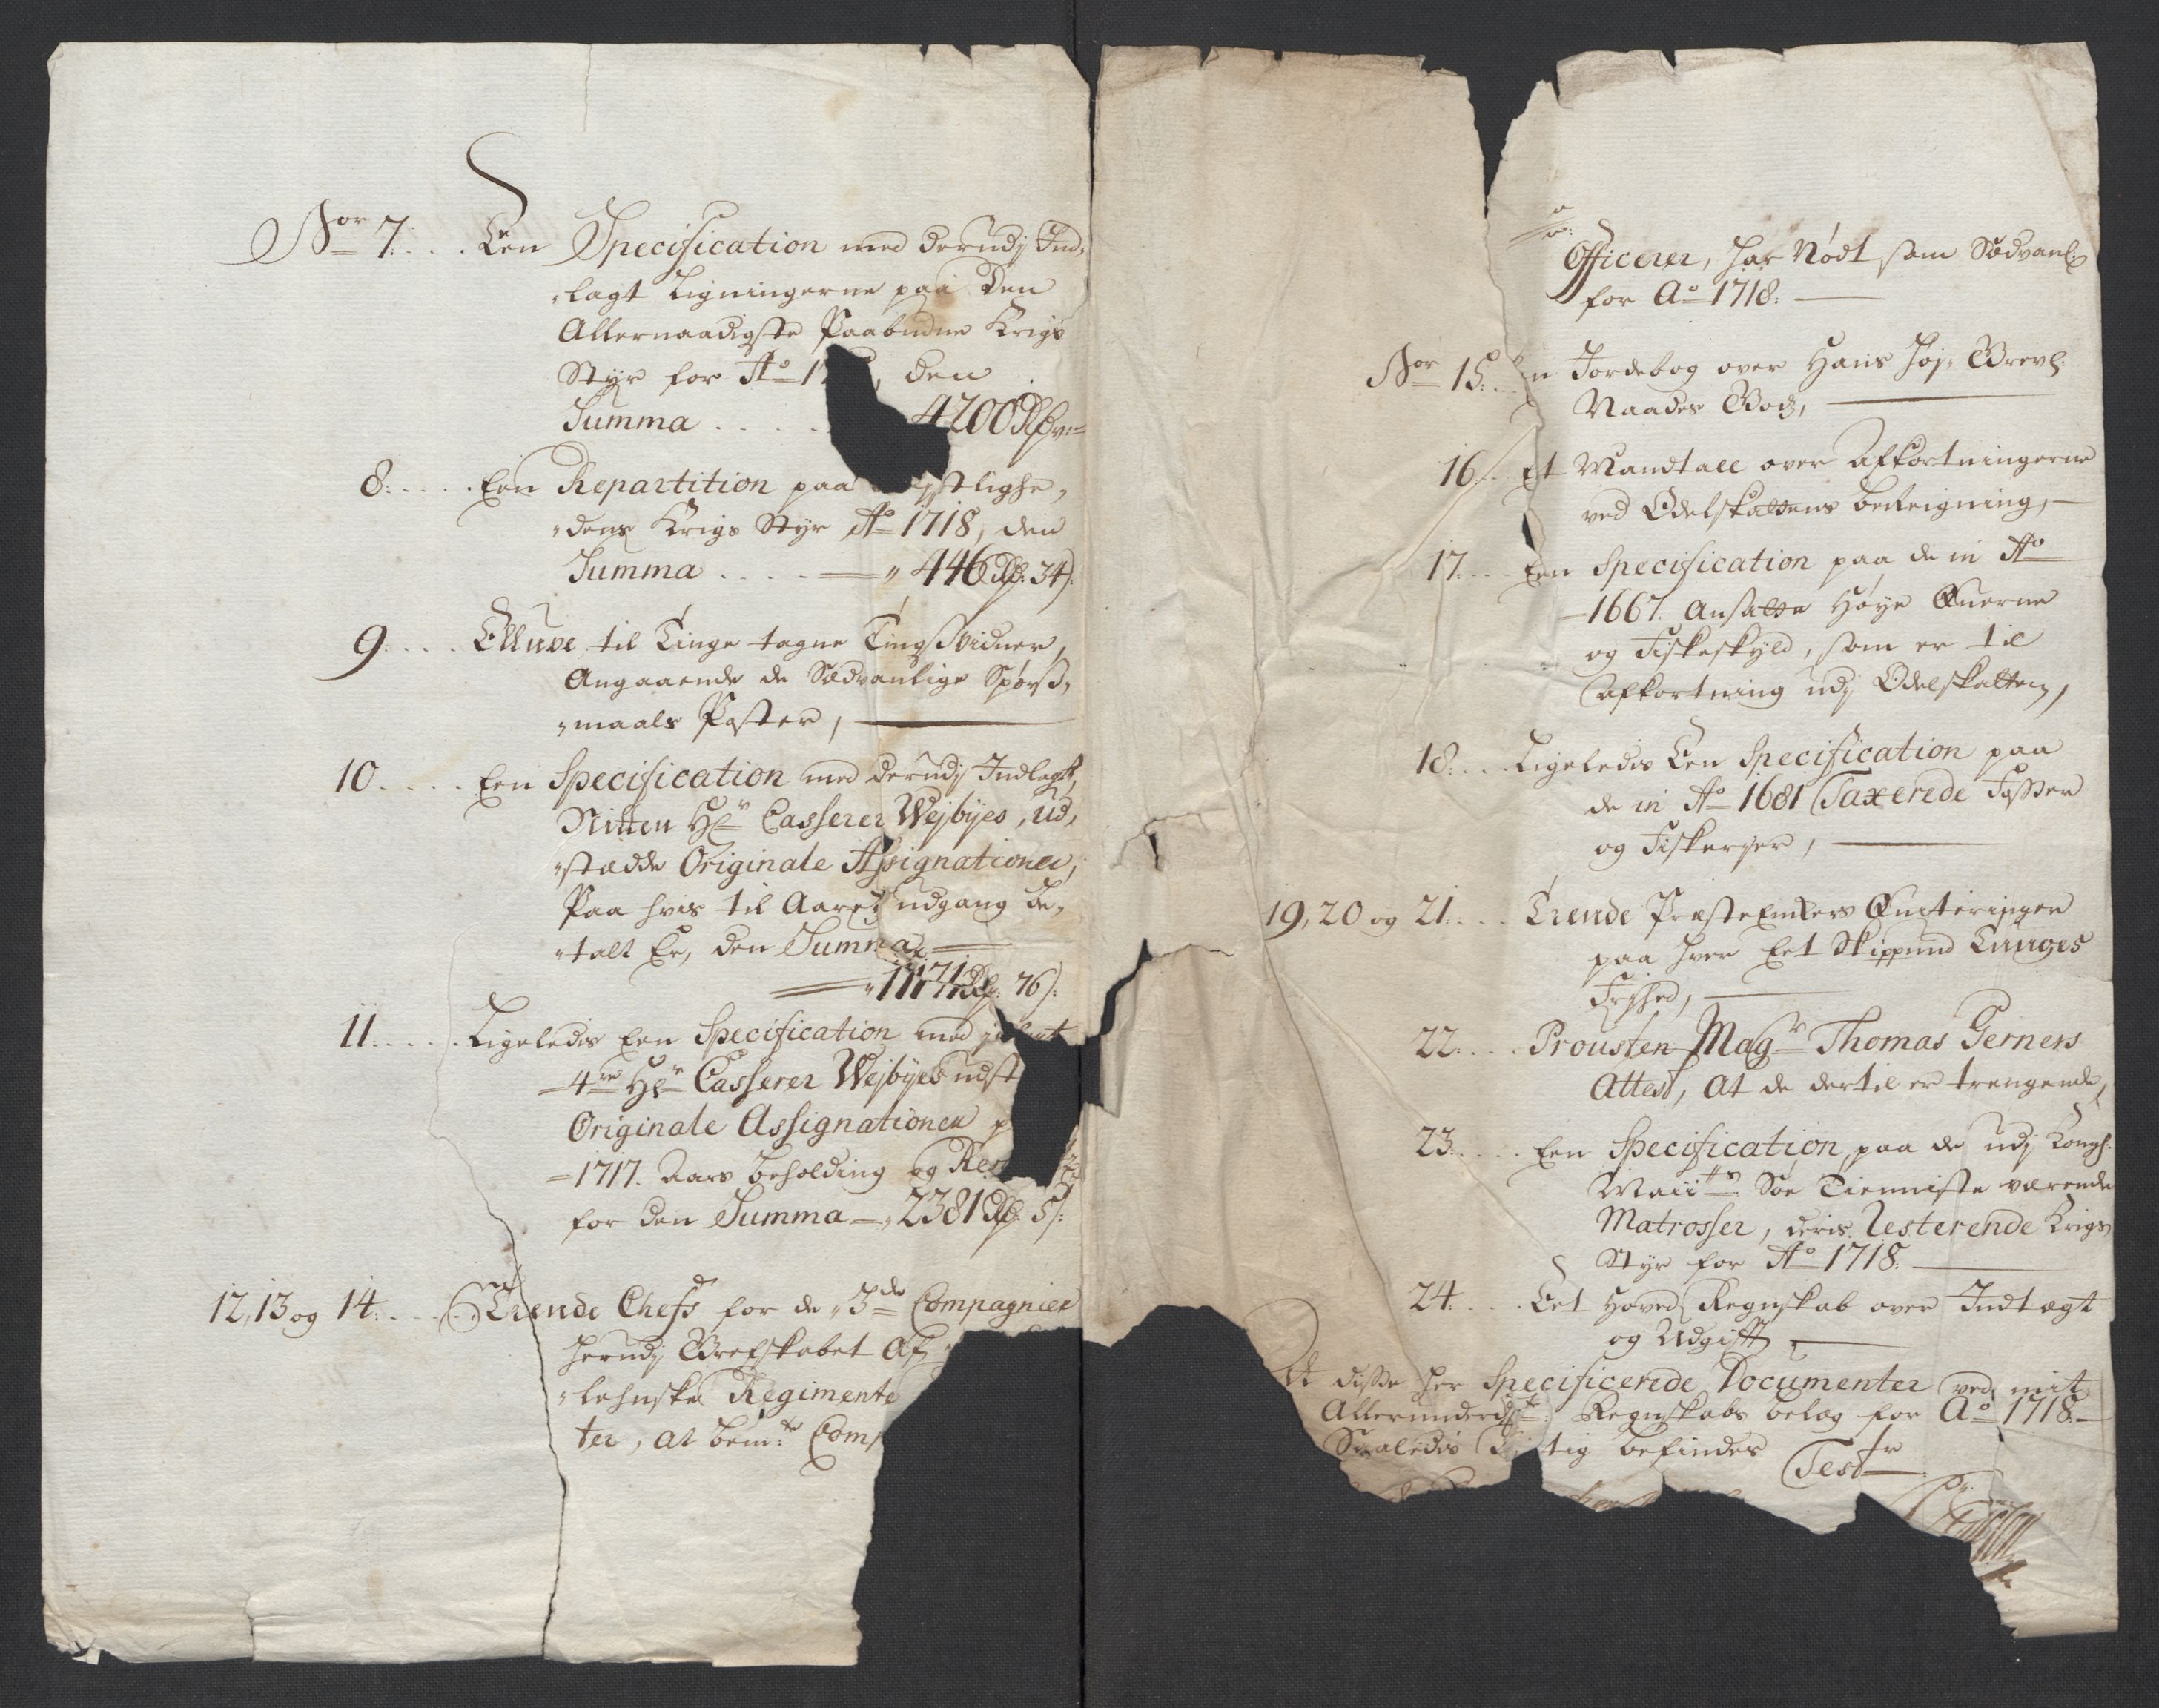 Nor 7. . . . Een Specification med derudj Ind,
"lagt Ligningerne paa den
Allernaadigste Paabudne Krigs
Styr for Ao 17 , den
Summa . . . . 4200 Rdr
8. . . . . Een Repartition paa stlighe,
"dens Krigs Styr Ao 1718, den
Summa . . . . — " 446 Rdr. 34 s.
9. . . . Elluve til Tinge tagne Tingsvidner,
Angaaende de Sædvanlige Spørs,
"maals Poster, —
10. . . . . Een Specification med derudj Indlagt,
Nitten Hr Casserer Wejbÿes, ud,
"stædde Originale Assignationer,
Paa hvis til Aaretz udgang be,
"talt Er, den Summa —
— " 11171 Rdr. 76 s:
11. . . . . Ligeledis Een Specification med
— 4re Hr Casserer Wejbÿes udst
Originale Assignationer p
— 1717. Aars beholding og Res
for den Summa —, 2381 Rdr. 5 s:
12, 13 og 14. . . . Trende Chefs for de "3de Compagnier
herudj Grefskabet Af
"lehnske Regimente
ter, at bemte Comp
Officerer, har Nödt som Sædvanl:
for Ao 1718. —
Nor 15. . . n Jordebog over Hans Høj Grevl:
Naades Gods, —
16. . Et Mandtall over Afkortningerne
ved Odelskattens beReigning, —
17. . . . Een Specification paa de in Ao
— 1667. Ansatte Høye Qverne
og Fiskeskyld, som er til
Afkortning udj Odelskatten,
18. . . . Ligeledis Een Specification paa
de in Ao 1681 Taxerede Fosser
og Fiskerjer, —
19, 20 og 21. . . . Trende PræsteEnkers Qviteringer
paa hver Eet Skippund Tunges
Frjhed, —
22. . . . Prousten Magr Thomas Gerners
Attest, at de dertil er trengende,
23. . . . . Een Specification paa de udj Kongl:
Maiits Søe Tienniste værende
Matrosser, deris Resterende Krigs
Styr for Ao 1718. —
24. . . . Eet Hoved Regnskab over Indtægt
og Udgifft —
At disse her Specificerede Documenter ved mit
Allerunderdste Regnskabs belæg for Ao 1718 —
Saaledis tig befindes Testr